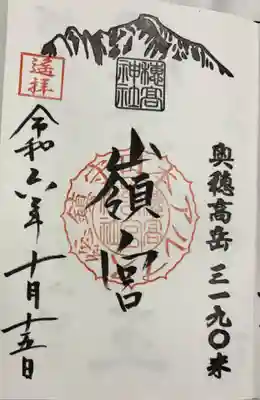 奥穂高岳 三一九〇米
穂髙
神社
嶺宮
遙拝
令和六年十月十五日